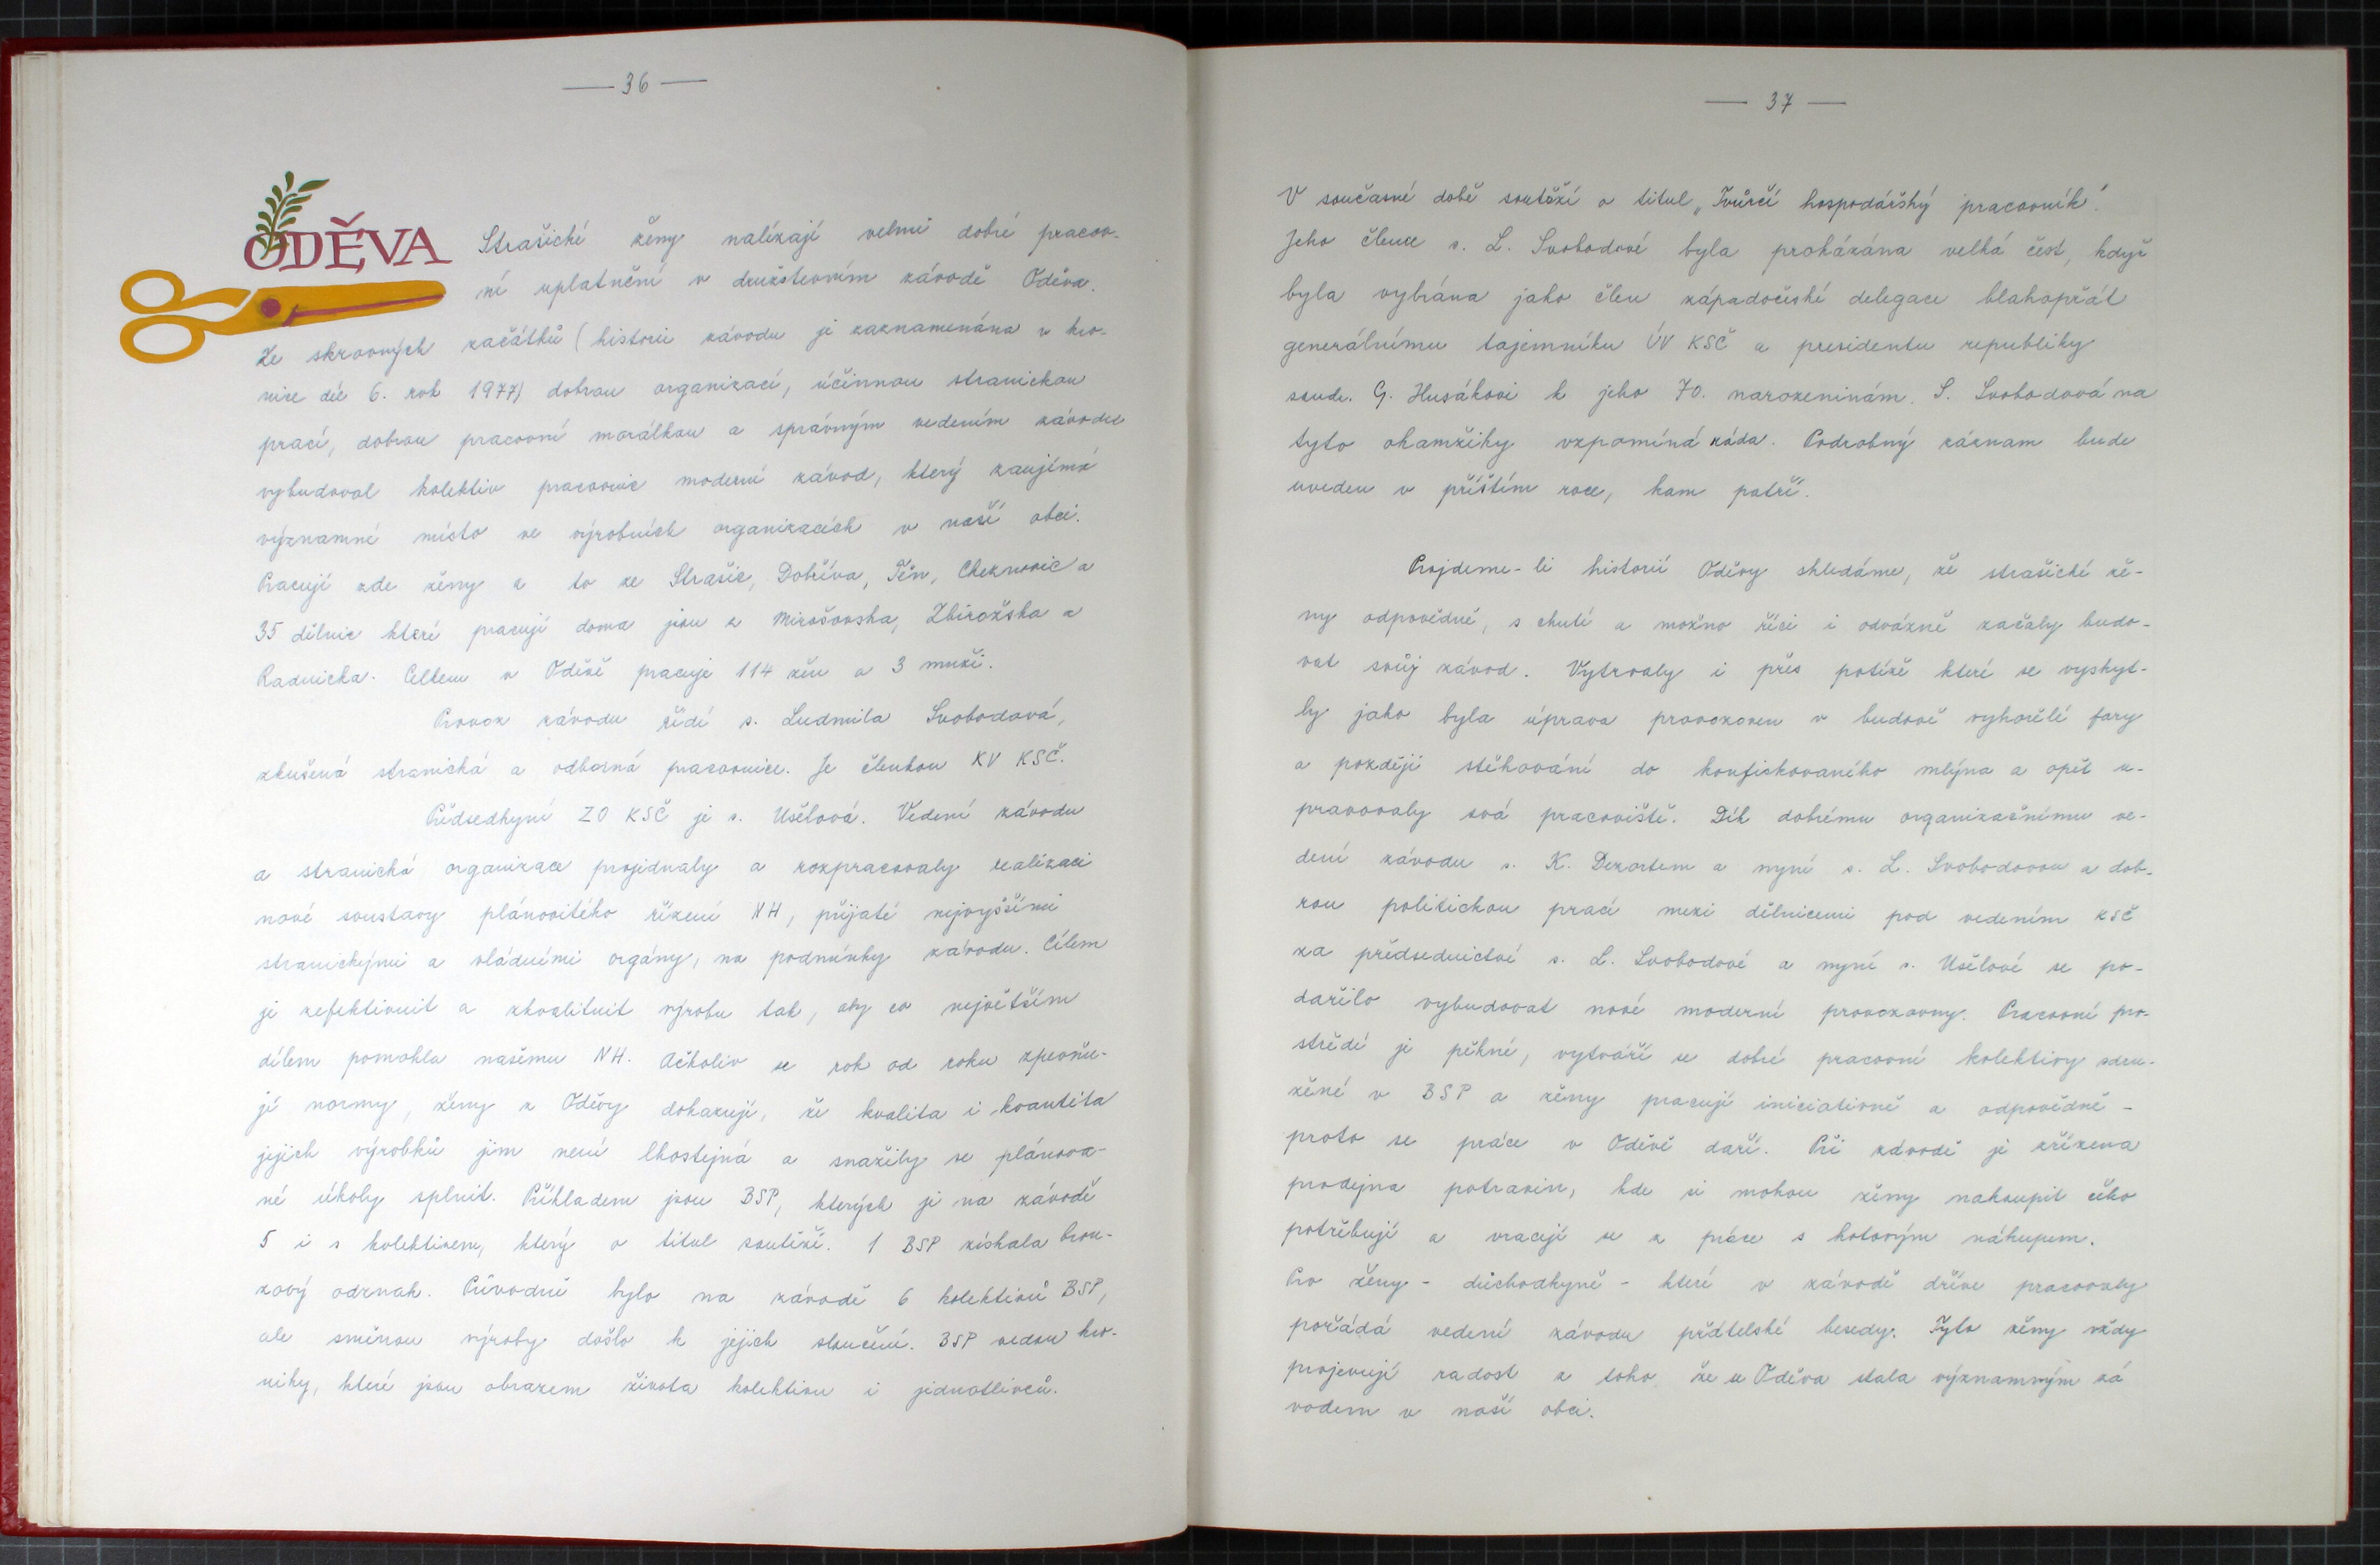 — 36 —
ODĚVA
Strašické ženy nalézají velmi dobré pracov-
ní uplatnění v družstevním závodě Oděva.
Ze skrovných začátků (historie závodu je zaznamenána v kro-
nice díl 6. rok 1977) dobrou organizací, účinnou stranickou
prací, dobrou pracovní morálkou a správným vedením závodu
vybudoval kolektiv pracovnic moderní závod, který zaujímá
významné místo ve výrobních organizacích v naší obci.
Pracují zde ženy a to ze Strašic, Dobříva, Těn, Cheznovic a
35 dělnic které pracují doma jsou z Mirošovska, Zbirožska a
Radnicka. Celkem v Oděvě pracuje 114 žen a 3 muži.
Provoz závodu řídí s. Ludmila Svobodová,
zkušená stranická a odborná pracovnice. Je členkou KV KSČ.
Předsedkyní ZO KSČ je s. Ušelová. Vedení závodu
a stranická organizace projednaly a rozpracovaly realizaci
nové soustavy plánovitého řízení NH, přijaté nejvyššími
stranickými a vládními orgány, na podmínky závodu. Cílem
je zefektivnit a zkvalitnit výrobu tak, aby co největším
dílem pomohla našemu NH. Ačkoliv se rok od roku zpevňu-
jí normy, ženy z Oděvy dokazují, že kvalita i kvantita
jejich výrobků jim není lhostejná a snažily se plánova-
né úkoly splnit. Příkladem jsou BSP, kterých je na závodě
5 i s kolektivem, který o titul soutěží. 1 BSP získala bron-
zový odznak. Původně bylo na závodě 6 kolektivů BSP,
ale změnou výroby došlo k jejich sloučení. BSP vedou kro-
niky, které jsou obrazem života kolektivu i jednotlivců.
— 37 —
V současné době soutěží o titul „Tvůrčí hospodářský pracovník".
Jeho člence s. L. Svobodové byla prokázána velká čest, když
byla vybrána jako člen západočeské delegace blahopřát
generálnímu tajemníku ÚV KSČ a presidentu republiky
soudr. G. Husákovi k jeho 70. narozeninám. S. Svobodová na
tyto okamžiky vzpomíná ráda. Podrobný záznam bude
uveden v příštím roce, kam patří.
Projdeme-li historii Oděvy shledáme, že strašické že-
ny odpovědně, s chutí a možno říci i odvážně začaly budo-
vat svůj závod. Vytrvaly i přes potíže které se vyskyt-
ly jako byla úprava provozoven v budově vyhořelé fary
a později stěhování do konfiskovaného mlýna a opět u-
pravovaly svá pracoviště. Dík dobrému organizačnímu ve-
dení závodu s. K. Dezortem a nyní s. L. Svobodovou a dob-
rou politickou prací mezi dělnicemi pod vedením KSČ
za předsednictví s. L. Svobodové a nyní s. Ušelové se po-
dařilo vybudovat nové moderní provozovny. Pracovní pro-
středí je pěkné, vytváří se dobré pracovní kolektivy sdru-
žené v BSP a ženy pracují iniciativně a odpovědně -
proto se práce v Oděvě daří. Při závodě je zřízena
prodejna potravin, kde si mohou ženy nakoupit čeho
potřebují a vracejí se z práce s hotovým nákupem.
Pro ženy - důchodkyně - které v závodě dříve pracovaly
pořádá vedení závodu přátelské besedy. Tyto ženy vždy
projevují radost z toho že se Oděva stala významným zá
vodem v naší obci.